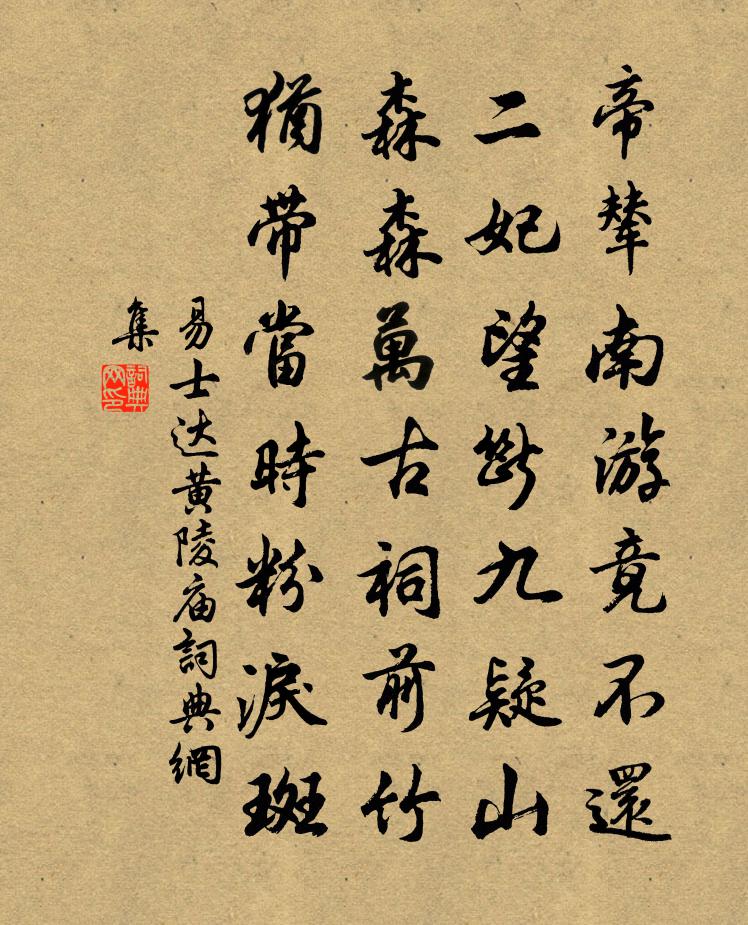 帝輦南游竟不還
二妃望斷九疑山
森森萬古祠前竹
猶帶當時粉淚斑
易士达黄陵庙詞典網
集
詞典網印